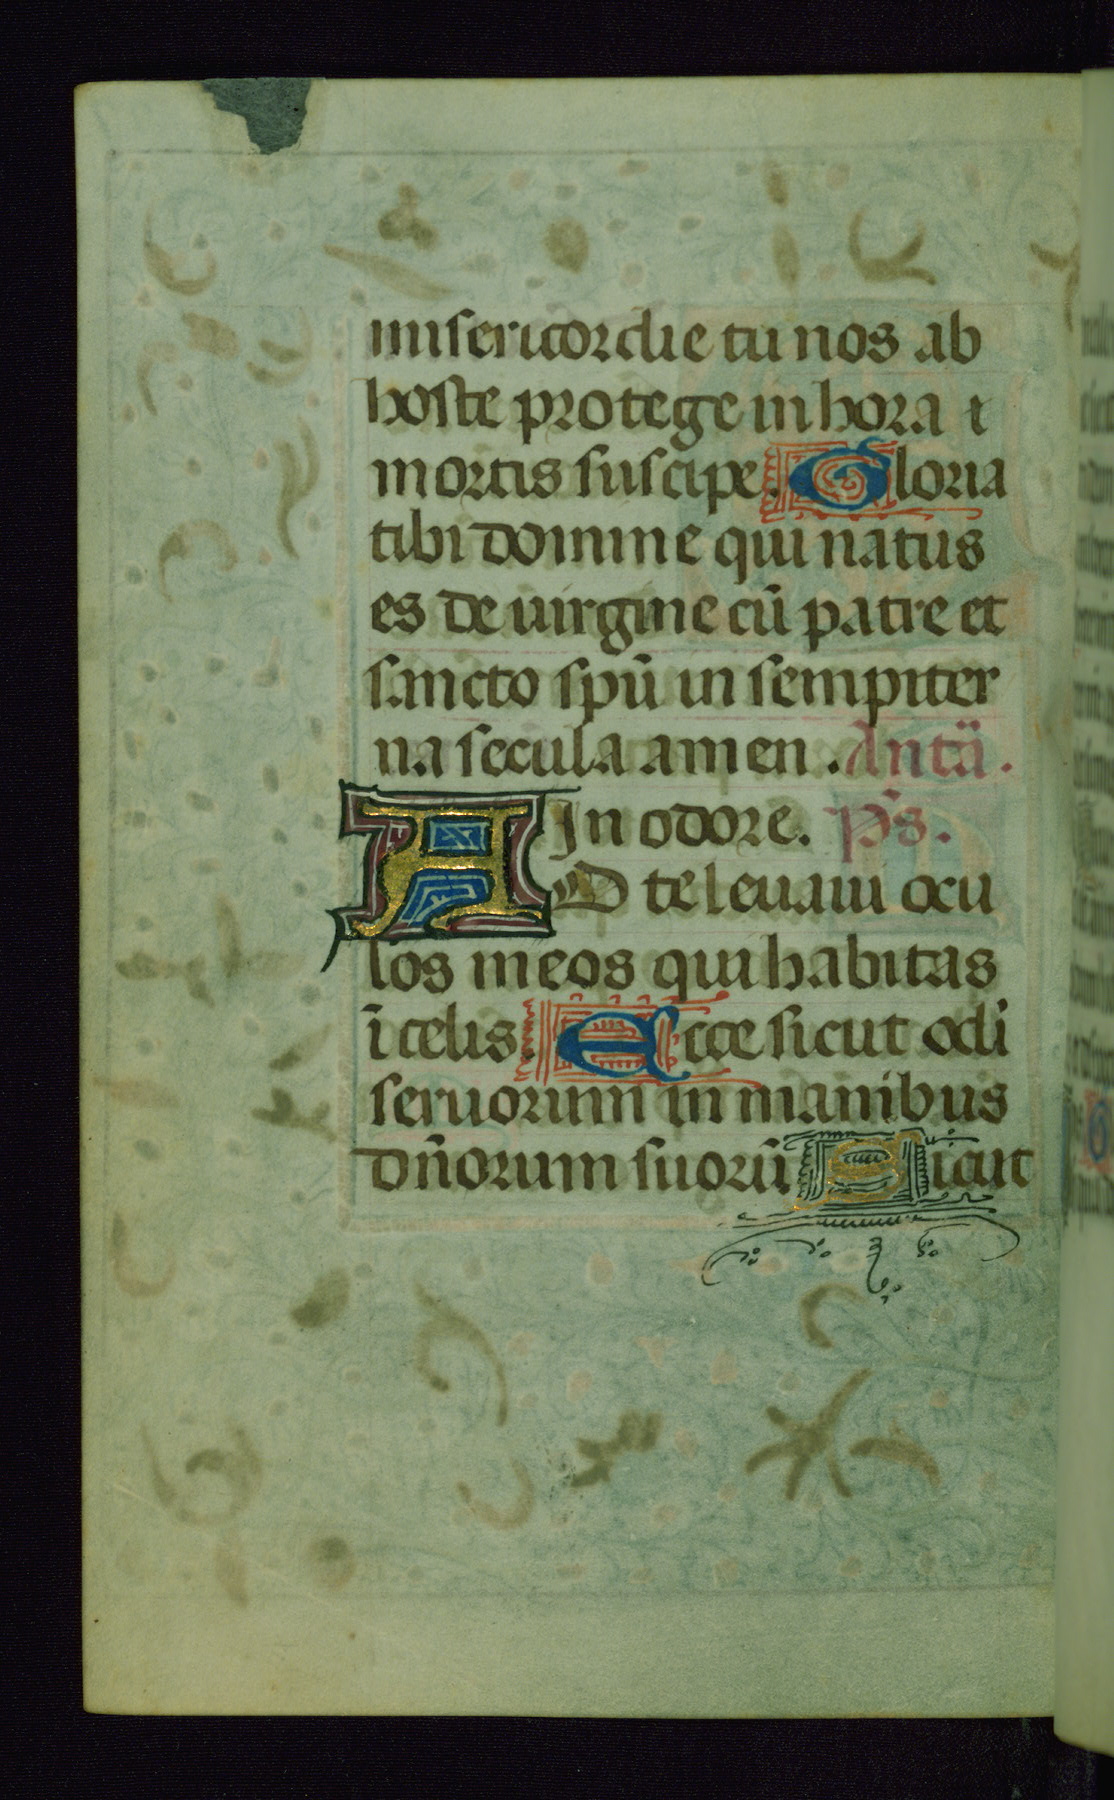 misericordie tu nos ab
hoste protege in hora ⁊
mortis suscipe. Gloria
tibi domine qui natus
es de uirgine cū patre et
sancto spū in sempiter
na secula amen. Antā.
In odore. ps.
AD te leuaui ocu
los meos qui habitas
ī celis. Ecce sicut odi
seruorum in manibus
dn̄orum suorū. Sicut